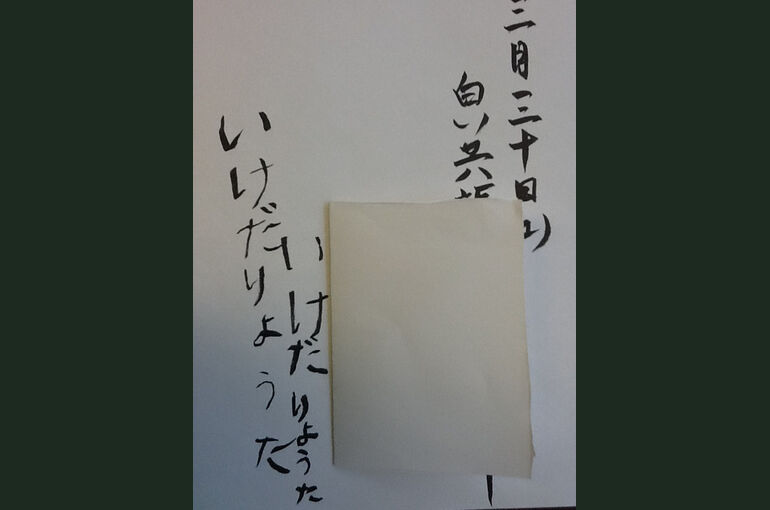 三月三十日
白い共
いけだりょうた
いけだりょうた